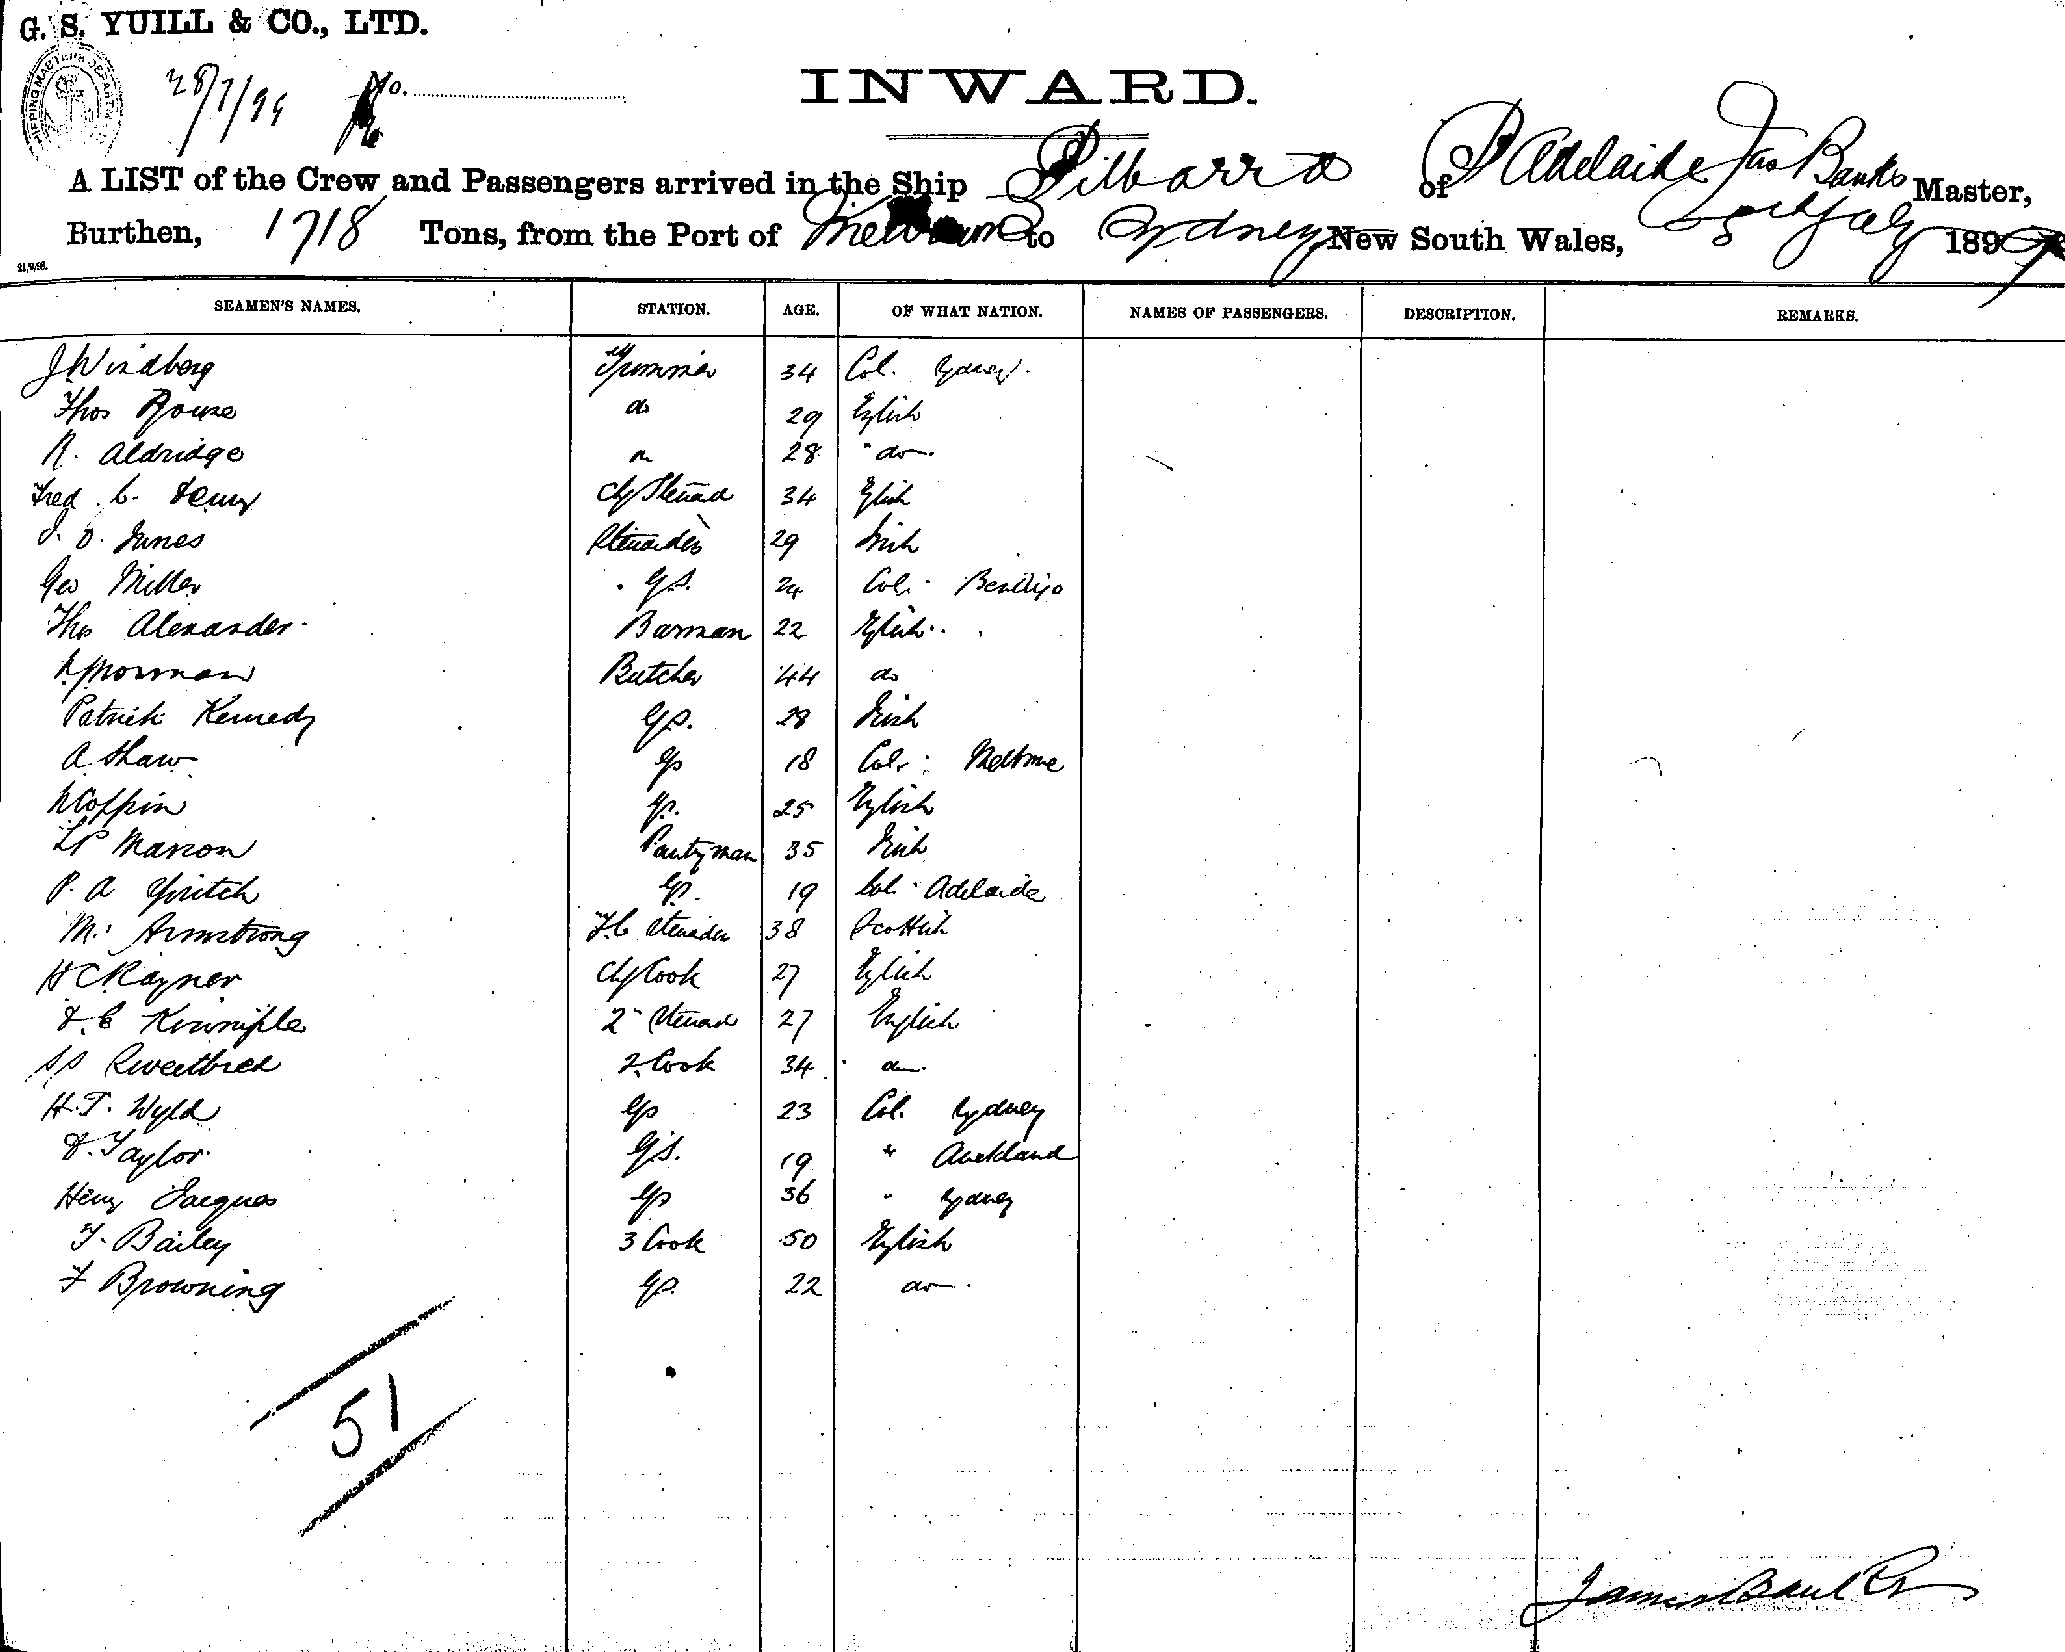 G. S. YUILL & CO., LTD.
28/7/99 No.
INWARD.
A LIST of the Crew and Passengers arrived in the Ship Pilbarra of Pt Adelaide Jas Banks Master,
Burthen, 1718 Tons, from the Port of to Sydney New South Wales, July 1899
SEAMEN'S NAMES. STATION. AGE. OF WHAT NATION. NAMES OF PASSENGERS. DESCRIPTION. REMARKS.
J Windberg Trimmer 34 Col. Sydney.
Thos Rouse do 29 English
R. Aldridge do 28 " do
Fred. C. Chf Steward 34 English
J. D. Innes Steward 29 Irish
Geo Miller G.S. 24 Col. Bendigo
Thos Alexander Barman 22 English
Norman Butcher 44 do
Patrick Kennedy G.S. 28 Irish
A. Shaw GS 18 Col. Melbourne
Coffin GS. 25 English
Manson Pantryman 35 Irish
P. A GS. 19 Col. Adelaide
M. Armstrong 38 Scottish
H C Rayner Chf Cook 27 English
2 Steward 27 English
Sweetbred 2 Cook 34 do
H. T. Wyld GS 23 Col. Sydney
Taylor G.S. 19 " Auckland
Henry Jacques GS 36 " Sydney
T. Bailey 3 Cook 50 English
F Browning GS. 22 do
51
James Banks